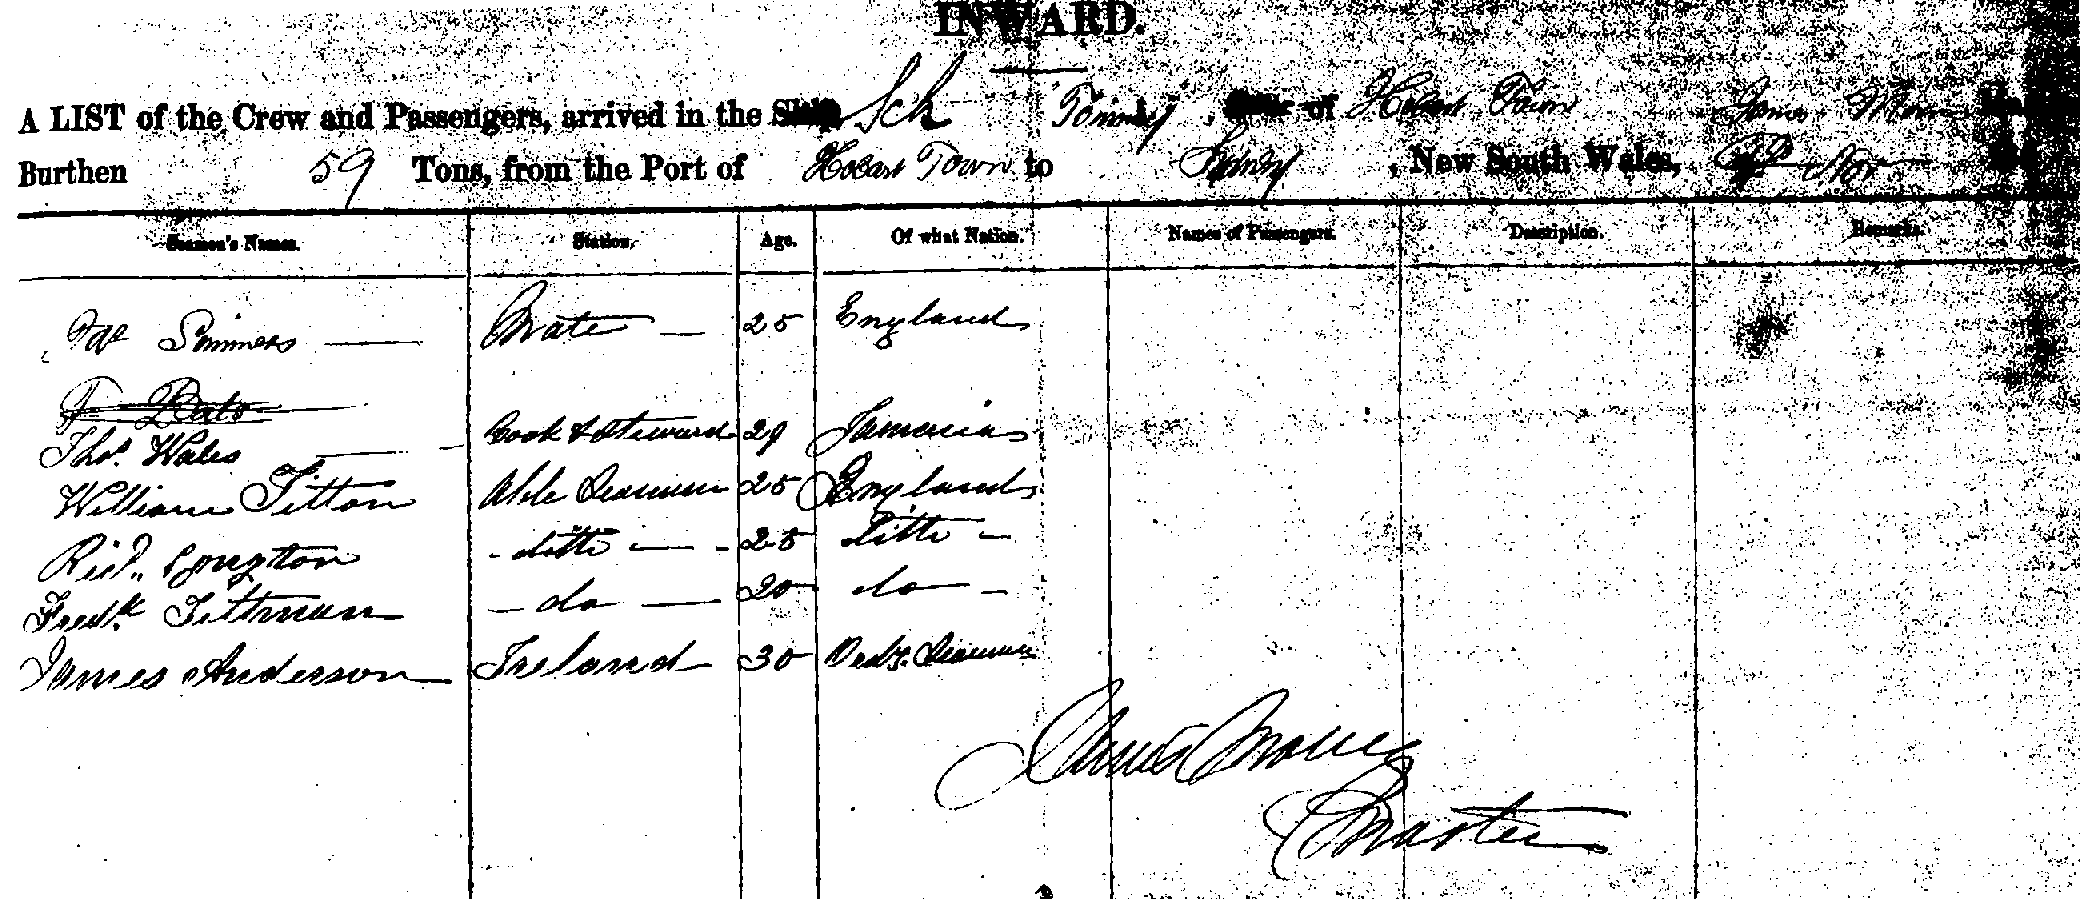 INWARD.
A LIST of the Crew and Passengers, arrived in the Ship Sch Tommy, of Hobart Town James
Burthen 59 Tons, from the Port of Hobart Town to Sydney, New South Wales, Nov
Seamen's Names. Station. Age. Of what Nation. Names of Passengers. Description. Remarks.
Simmers Mate 25 England
Thos. Wales Cook & Steward 29 Jamaica
William Titton Able Seaman 25 England
Richd. ditto 25 ditto
Fredk. Tittman do 20 do
James Anderson Ireland 30 Ordy. Seaman
James
Master